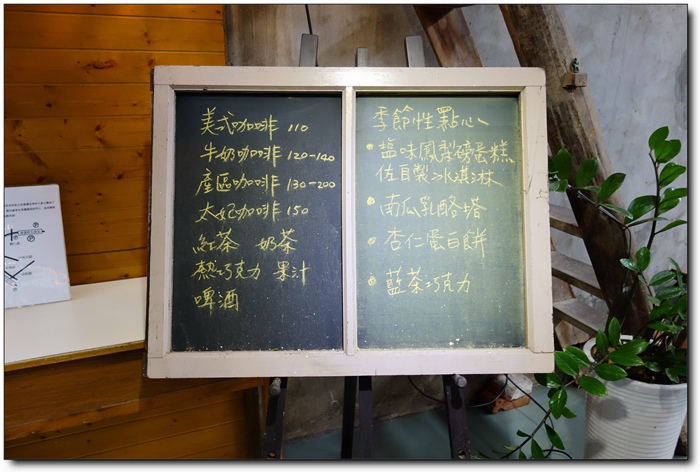 美式咖啡 110
牛奶咖啡 120-140
產區咖啡 130-200
太妃咖啡 150
紅茶 奶茶
熱巧克力 果汁
啤酒
季節性點心
• 塩味鳳梨磅蛋糕
佐自製冰淇淋
• 南瓜乳酪塔
• 杏仁蛋白餅
• 藍茶巧克力